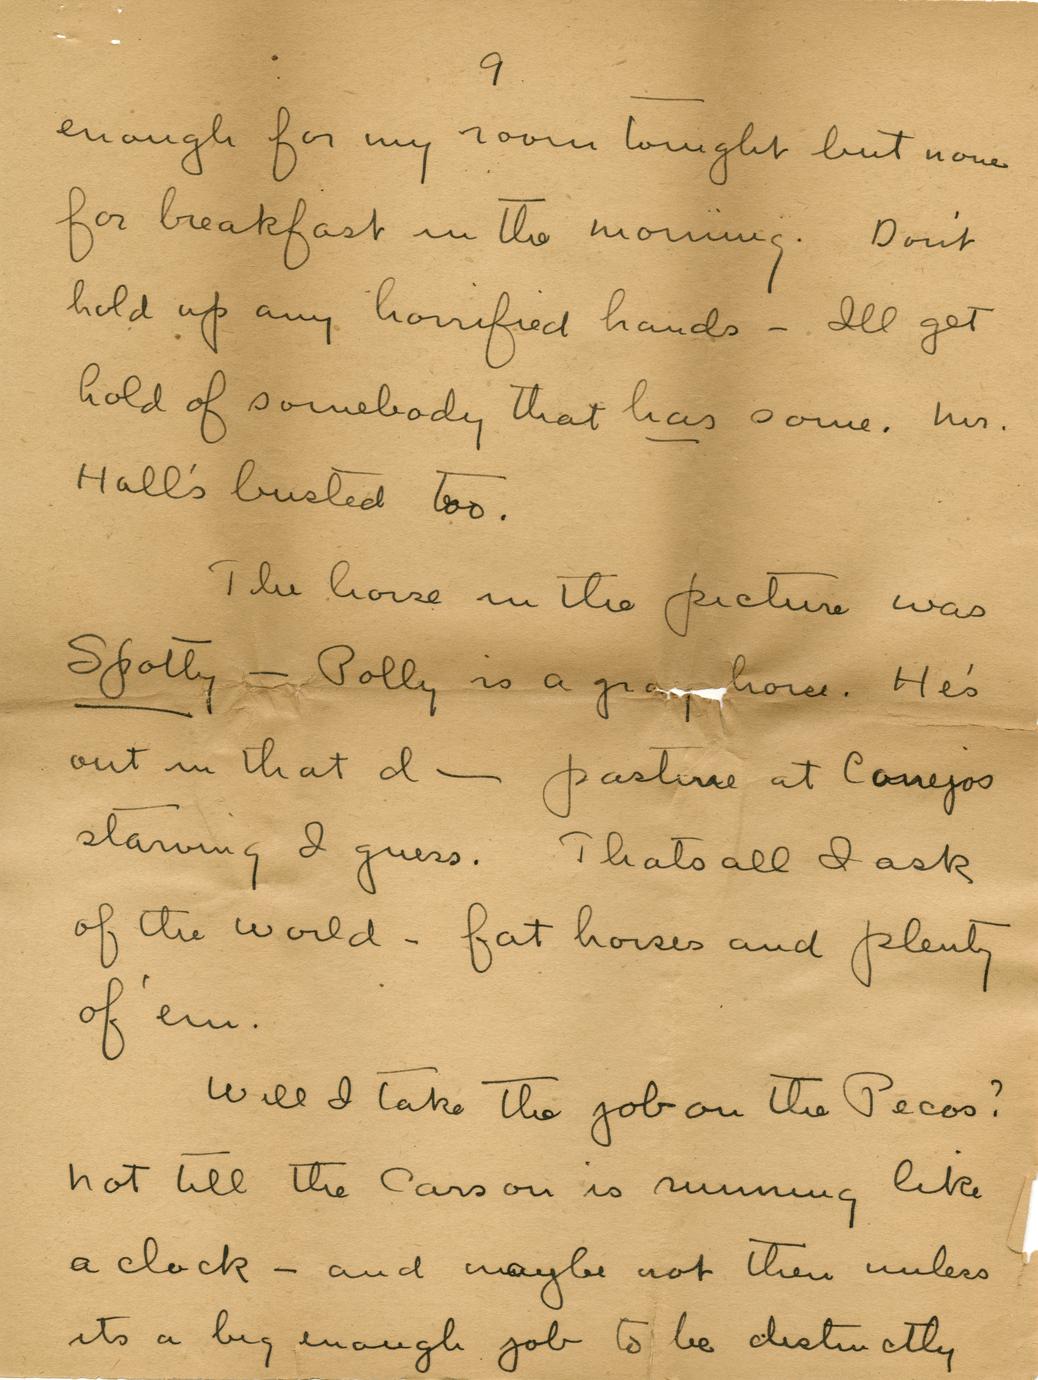 9
enough for my room tonight but none
for breakfast in the morning. Don't
hold up any horrified hands - Ill get
hold of somebody that has some. Mr.
Hall's busted too.
The horse in the picture was
Spotty — Polly is a gray horse. He's
out in that d— pasture at Canejos
starving I guess. Thats all I ask
of the world - fat horses and plenty
of 'em.
Will I take the job on the Pecos?
Not till the Carson is running like
a clock - and maybe not then unless
its a big enough job to be distinctly